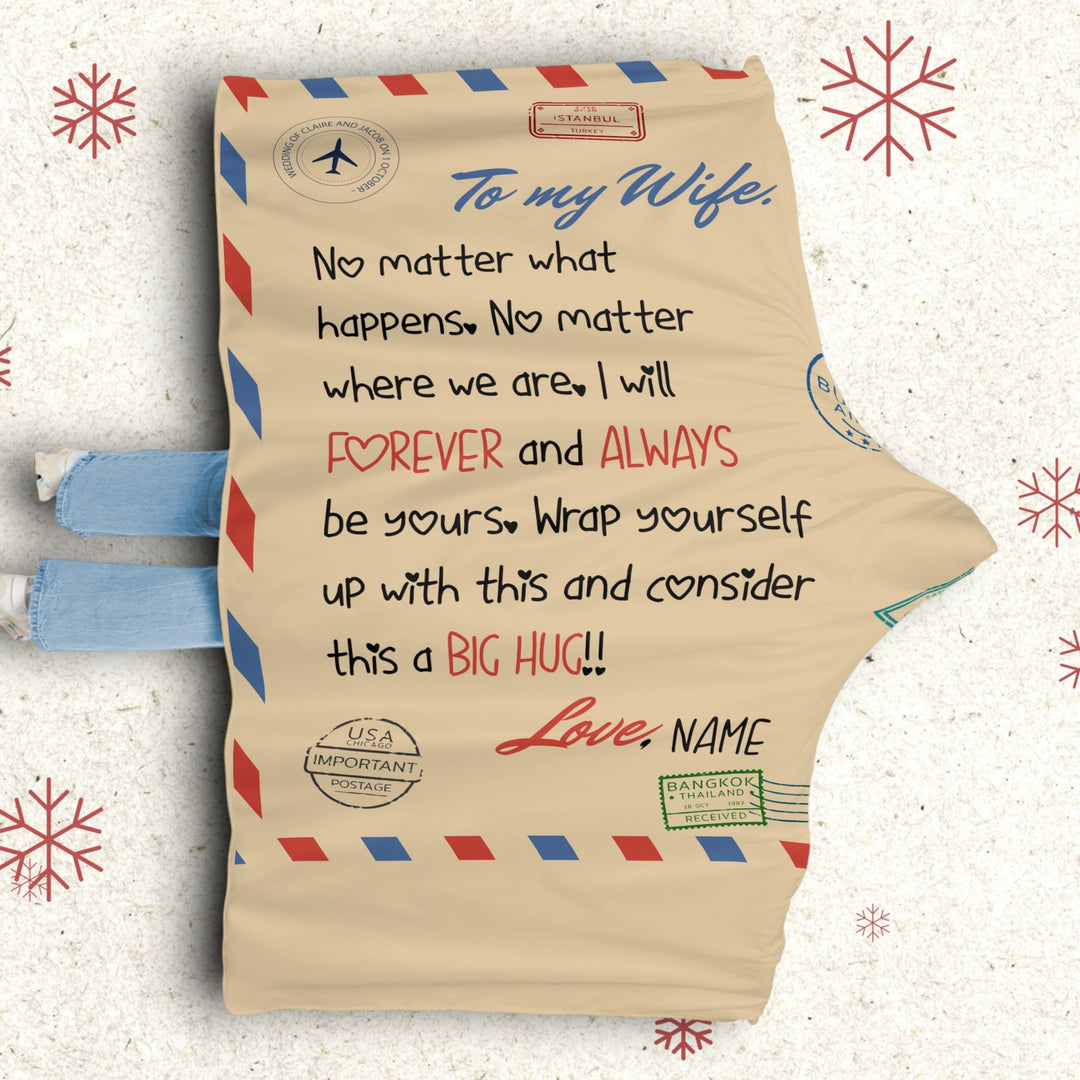 WEDDING OF CLAIRE AND JACOB ON 1 OCTOBER -
ISTANBUL
TURKEY
To my Wife.
No matter what
happens. No matter
where we are. I will
FOREVER and ALWAYS
be yours. Wrap yourself
up with this and consider
this a BIG HUG!!
Love, NAME
USA
CHICAGO
IMPORTANT
POSTAGE
BANGKOK
THAILAND
18 OCT 1987
RECEIVED